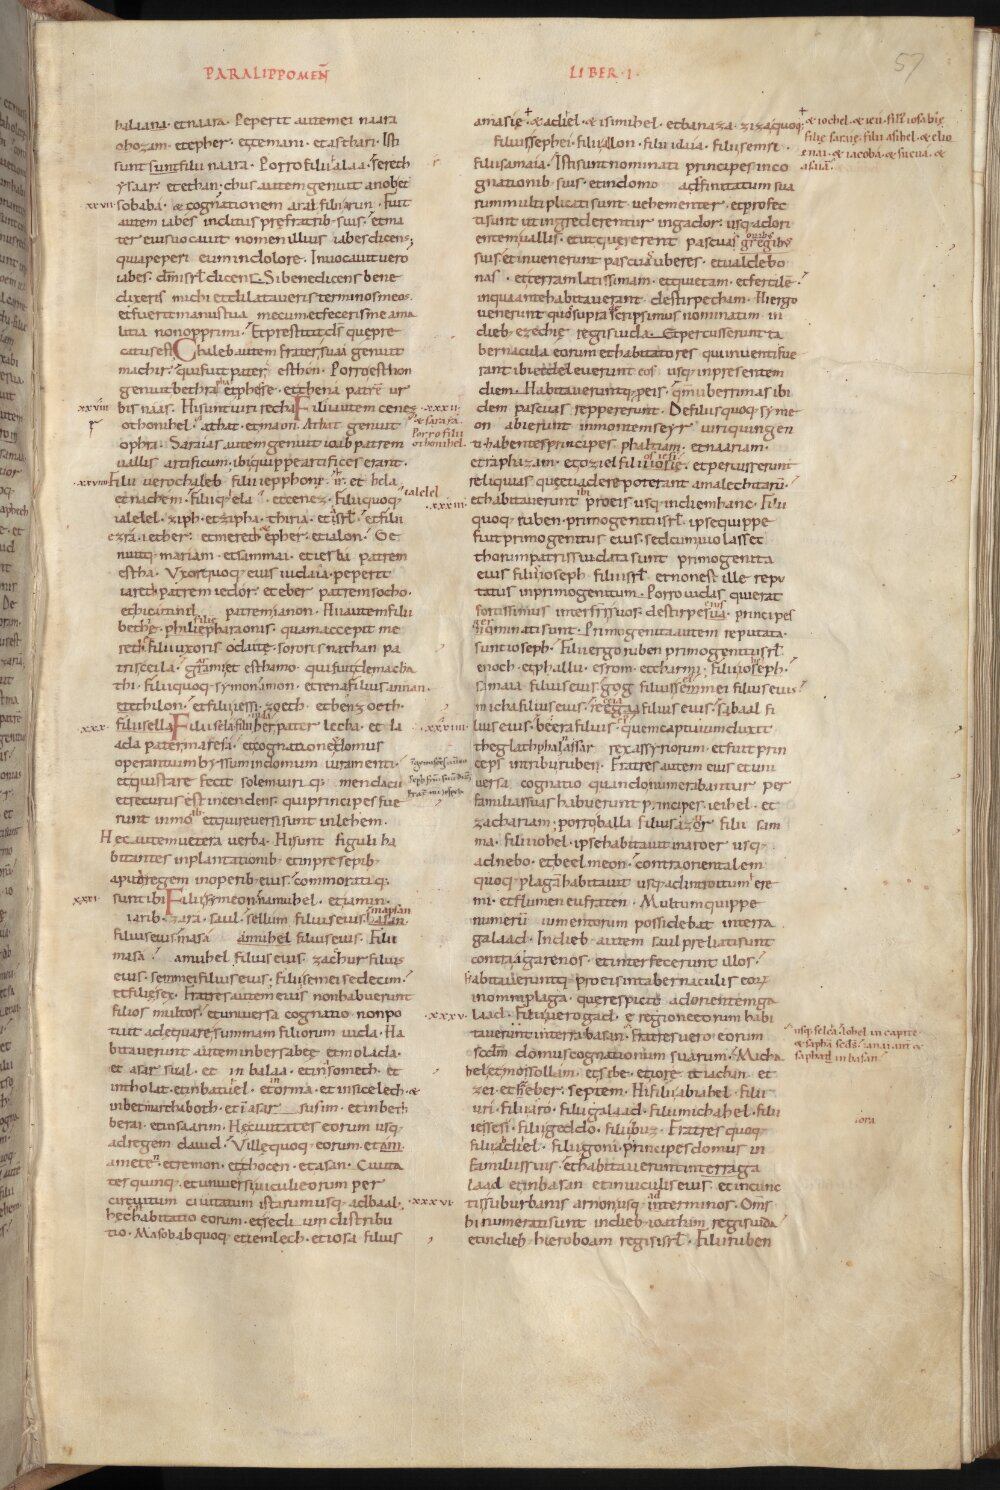 PARALIPPOMEN̄
LIBER · I ·
57
halaana · et naara · Peperit autem ei naara
ohozam · et epher · et temani · et asthari · Isti
sunt sunt filii naara · Porro filii alaa · sereth
ysaar et ethan · chus autem genuit anobet
xxvii
sobaba · & cognationem aral filii arun · Fuit
autem iabes inclitus pre fratrib· suis · et ma
ter eius uocauit nomen illius iabes dicens;
quia peperi eum in dolore · Inuocauit uero
iabes · dm̄ isrl̄ dicens · Si benedicens bene
dixeris michi et dilataueris terminos meos·
et fuerit manus tua mecum et feceris me a ma
litia non opprimi · Et prestitit ds̄ que pre
catus est Chaleb autem frater suai genuit
machir · qui fuit pater esthon · Porro esthon
genuit bethra phese · et thena patrē ur
xxviii
bis naas · Hi sunt uiri recha Filii autem cenez
othonihel · athat · et maon · Athat genuit
ophra · Saraias autem genuit ioab patrem
uallis artificum · ibi quippe artifices erant ·
xxviiii
Filii uero chaleb filii iepphone · ir · et hela
et nachem · filiiq· ela · et cenez · Filii quoq·
ialelel · ziph · et zipha · thiria · et isrl̄ · et filii
ezra · iether · et mered · epher · et ialon · Ge
nuitq· mariam · et sammai · et iesba patrem
estha · Vxor quoq· eius iudaia · peperit
iared patrem iedor · et eber patrem socho ·
et hicutihil patrem ianon · Hi autem filii
bethe · philie pharaonis · quam accepit me
red · filii uxoris odiate · sororis nathan pa
tris ceila · gramiet esthamo · qui fuit de macha
thi · Filii quoq· symon · amon · et rena filius annan ·
et ethilon · et filii iessi · zoeth · et benzoeth ·
xxx
filii sella Filii sela filii iuda her pater lecha · et la
ada pater maresa · et cognationes domus
operantium byssum in domum iuramenti ·
et qui stare fecit solem uiri q· mendacii
et securus est incendens · qui principes fue
runt in moab et qui reuersi sunt in lehem ·
Hec autem uetera uerba · Hi sunt figuli ha
bitantes in plantationib· et in presepib·
apud regem in operib· eius · commoratiq·
xxxi
sunt ibi Filii symeon namuhel · et iamin ·
iarib · zara · saul · sellum filius eius mapsan
filius eius masa · amuhel filius eius · Filii
masa · amuhel filius eius · zachur filius
eius · semmei filius eius · Filii semei sedecim ·
et filie sex · Fratres autem eius non habuerunt
filios multos · et uniuersa cognatio non po
tuit adequare summam filiorum iuda · Ha
bitauerunt autem in bersabee · et molada ·
et asar sual · et in balaa · et in somech · et
in tholat · et in batuel · et in orma · et in sicelech · &
in betmarchaboth · et in asar susim · et in beth
berai · et in saarim · Hec ciuitates eorum usq·
ad regem dauid · Ville quoq· eorum · etam ·
amete · et remon · et thocen · et asan · Ciuita
tes quinq· et uniuersi uiculi eorum per
circuitum ciuitatum istarum usq· ad baal ·
hec habitatio eorum · et sedium distribu
tio · Masobab quoq· et iemlech · et iosa filius
xxxii
& saraia ·
Porro filii
othonihel ·
ialelel
xxxiii
xxxiiii
xxxv
xxxvi
amasie · & adiel · et isimihel · et banaza · ziza quoq·
filius sephei · filii allon · filii idaia · filii semri ·
filii samaia · Isti sunt nominati principes in co
gnationib· suis · et in domo adfinitatum sua
rum multiplicati sunt uehementer · et profec
ti sunt ut ingrederentur in gador · usq· ad ori
entem uallis · et ut quererent pascuas gregibs
suis · et inuenerunt pascua uberes · et ualde bo
nas · et terram latissimam · et quietam · et fertilē
in qua ante habitauerant de stirpe cham · Hi ergo
uenerunt quos supra scripsimus nominatim in
dieb· ezechie regis iuda · Et percusserunt ta
bernacula eorum et habitatores qui inuenti fue
rant ibi et deleuerunt eos usq· in presentem
diem · Habitaueruntq· pro eis · qm̄ uberrimas ibi
dem pascuas reppererunt · De filiis quoq· syme
on abierunt in montem seyr uiri quingen
ti habentes principes phaltiam · et naariam ·
et raphaiam · et oziel filii iosie · et percusserunt
reliquias que euadere poterant amalechitarū
et habitauerunt ibi pro eis usq· in diem hanc · Filii
quoq· ruben · primogeniti isrl̄ · ipse quippe
fuit primogenitus eius · sed cum uiolasset
thorum patris sui data sunt primogenita
eius filiis ioseph filii isrl̄ · et non est ille repu
tatus in primogenitum · Porro iudas qui erat
fortissimus inter frs̄ suos · de stirpe eius principes
germinati sunt · Primogenita autem reputata
sunt ioseph · Filii ergo ruben primogeniti isrl̄
enoch · et phallu · esrom · et charmi · Filii ioseph ·
samaia filius eius · gog filius semmei filius eius
micha filius eius · reegaa filius eius · sabaal fi
lius eius · beera filius quem captiuum duxit
theglathphalassar rex assyriorum · et fuit prin
ceps in tribu ruben · Fratres autem eius et uni
uersa cognatio quando numerabantur per
familias suas habuerunt principes ieihel · et
zachariam · porro balla filius azor filii sam
ma · filii iohel · ipse habitauit in aroer usq·
ad nebo · et beelmeon · contra orientalem
quoq· plagam habitauit usq· ad introitum ere
mi · et flumen eufraten · Multum quippe
numerū iumentorum possidebat in terra
galaad · In dieb· autem saul preliati sunt
contra agarenos · et interfecerunt illos ·
habitaueruntq· pro eis in tabernaculis eorx
in omni plaga que respicit ad orientem ga
laad · Filii uero gad e regione eorum habi
tauerunt in terra basan · Fratres uero eorum
scdm̄ domus cognationum suarum · Micha
hel et mossollam · et sibe · et iore et iachan · et
zei · et heber · septem · Hi filii abiahel · filii
uri · filii iaro · filii galaad · filii michahel · filii
iessesi · filii geddo · filii buz · Fratres quoq·
filii adiel · filii goni · principes domus in
familiis suis · et habitauerunt in terra ga
laad et in basan · et in uiculis eius · et in cunc
tis suburbanis arnon usq· ad terminos · Oms̄
hi numerati sunt in dieb· ioatham regis iuda
et in dieb· hieroboam regis isrl̄ · Filii ruben
& iohel · & ieu · filii iosabie
filie saraie · filii asihel · & elio
enai · & iacoba · & sucua · &
asaia ·
usq· selca · iohel in capite
& saphā scds̄ · ianai aūt &
saphath in basan ·
iora